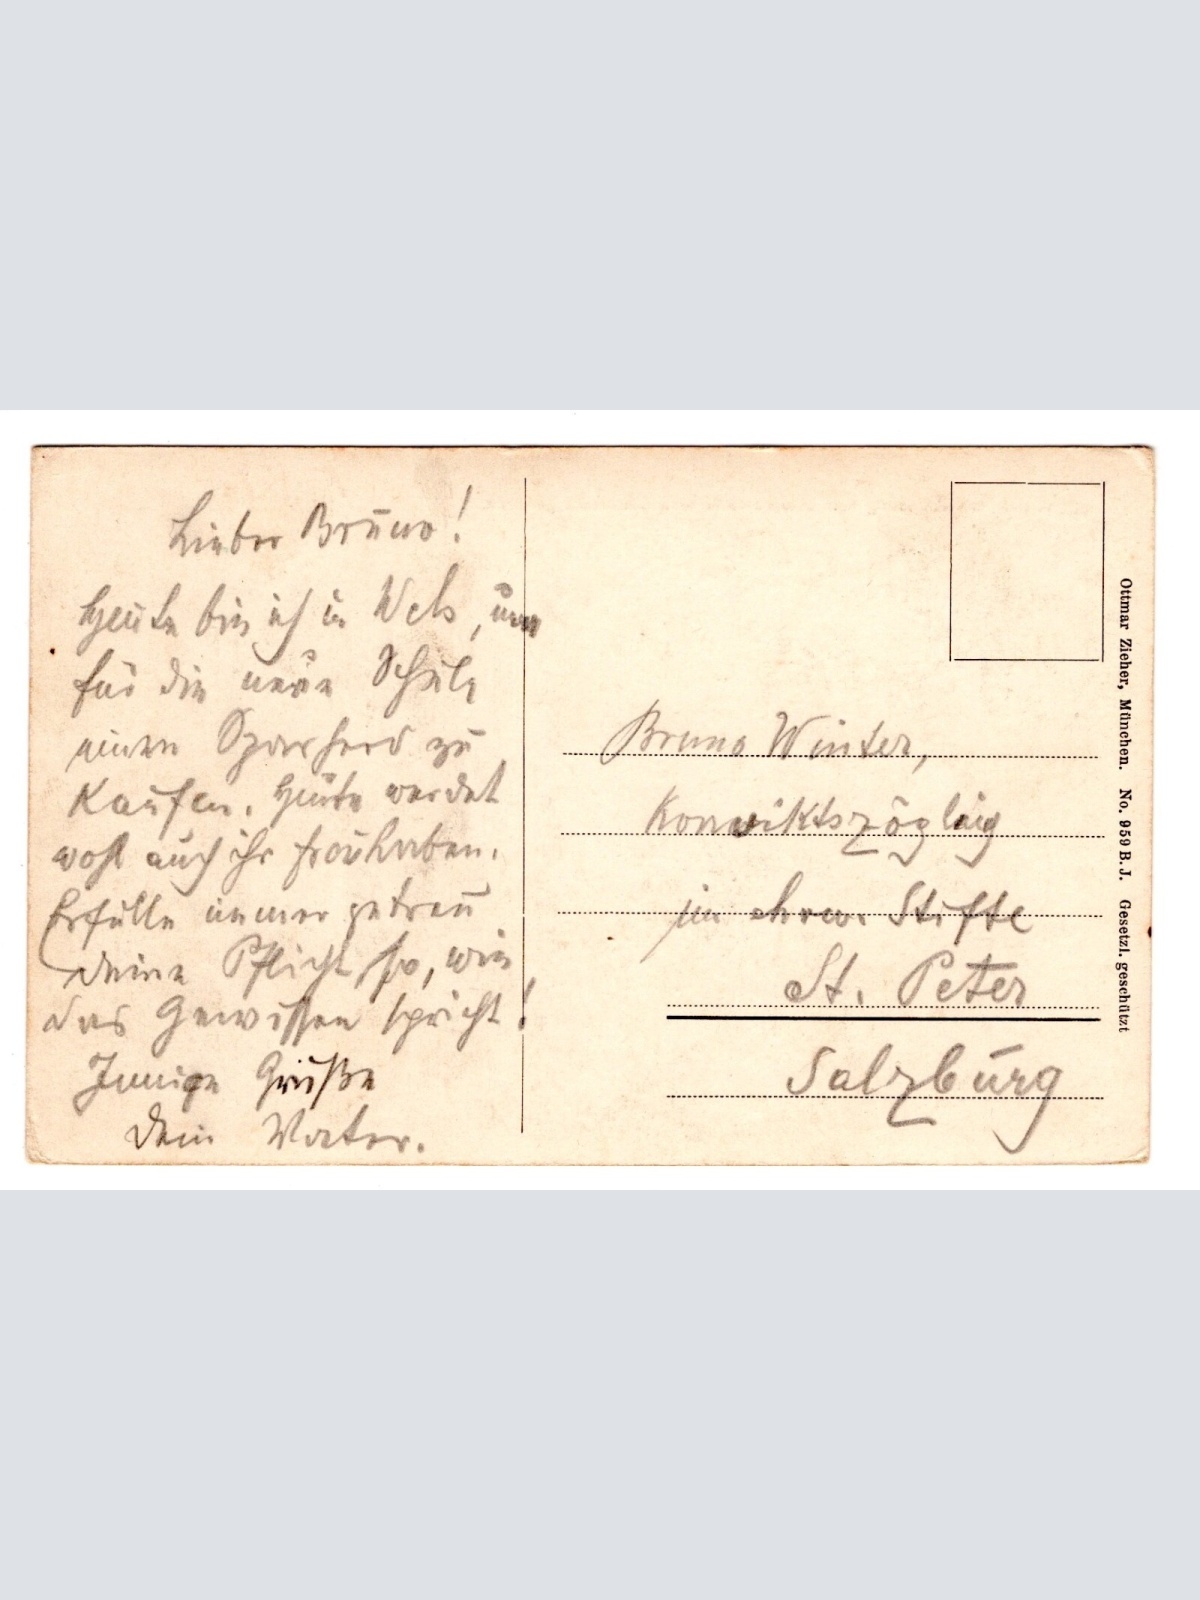 Lieber Bruno!
Heute bin ich in Wels, um
für die neue Schule
einen Sparherd zu
kaufen. Heute werdet
wohl auch ihr frei haben.
Erfülle immer getreu
deine Pflicht, so, wie
das Gewissen spricht!
Innige Grüße
Dein Vater.
Bruno Winter,
Konviktszögling
im ehrw. Stifte
St. Peter
Salzburg
Ottmar Zieher, München. No. 959 B. J. Gesetzl. geschützt